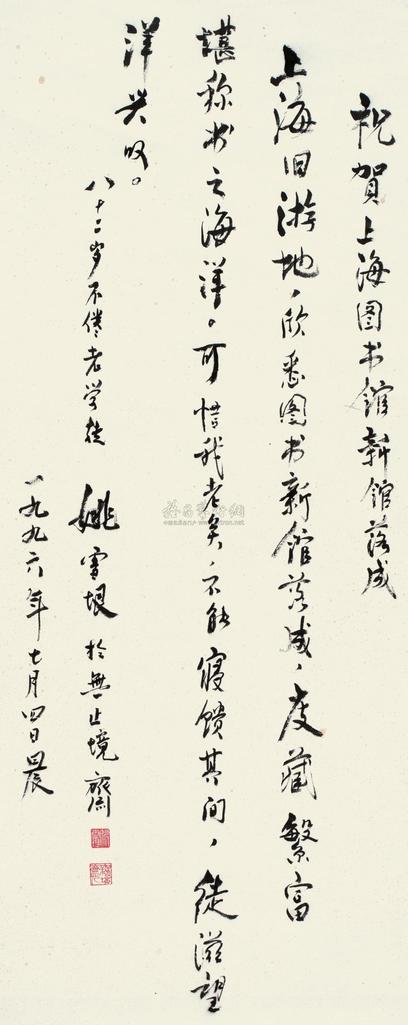 祝贺上海图书馆新馆落成
上海旧游地,欣悉图书新馆落成,庋藏繁富
堪称书之海洋。可惜我老矣,不能寝馈其间,徒滋望
洋兴叹。
八十六岁不倦老学徒
姚雪垠於無止境齋
一九九六年七月四日晨